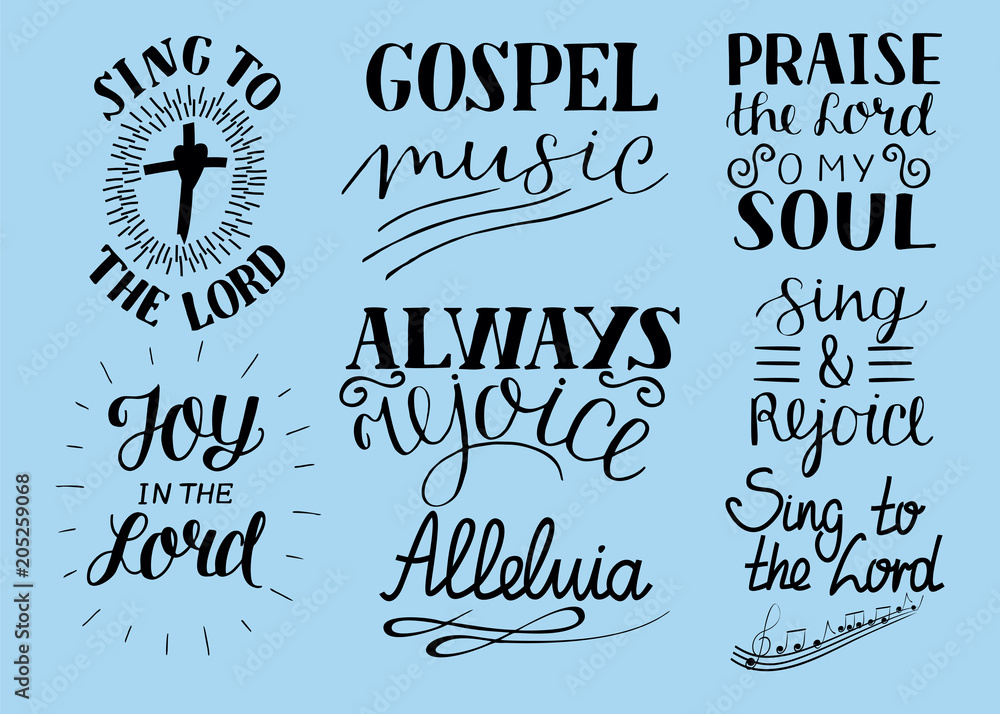 SING TO
THE LORD
GOSPEL
music
PRAISE
the Lord
O MY
SOUL
Joy
IN THE
Lord
ALWAYS
rejoice
Alleluia
Sing
&
Rejoice
Sing to
the Lord
Adobe Stock | #205259068